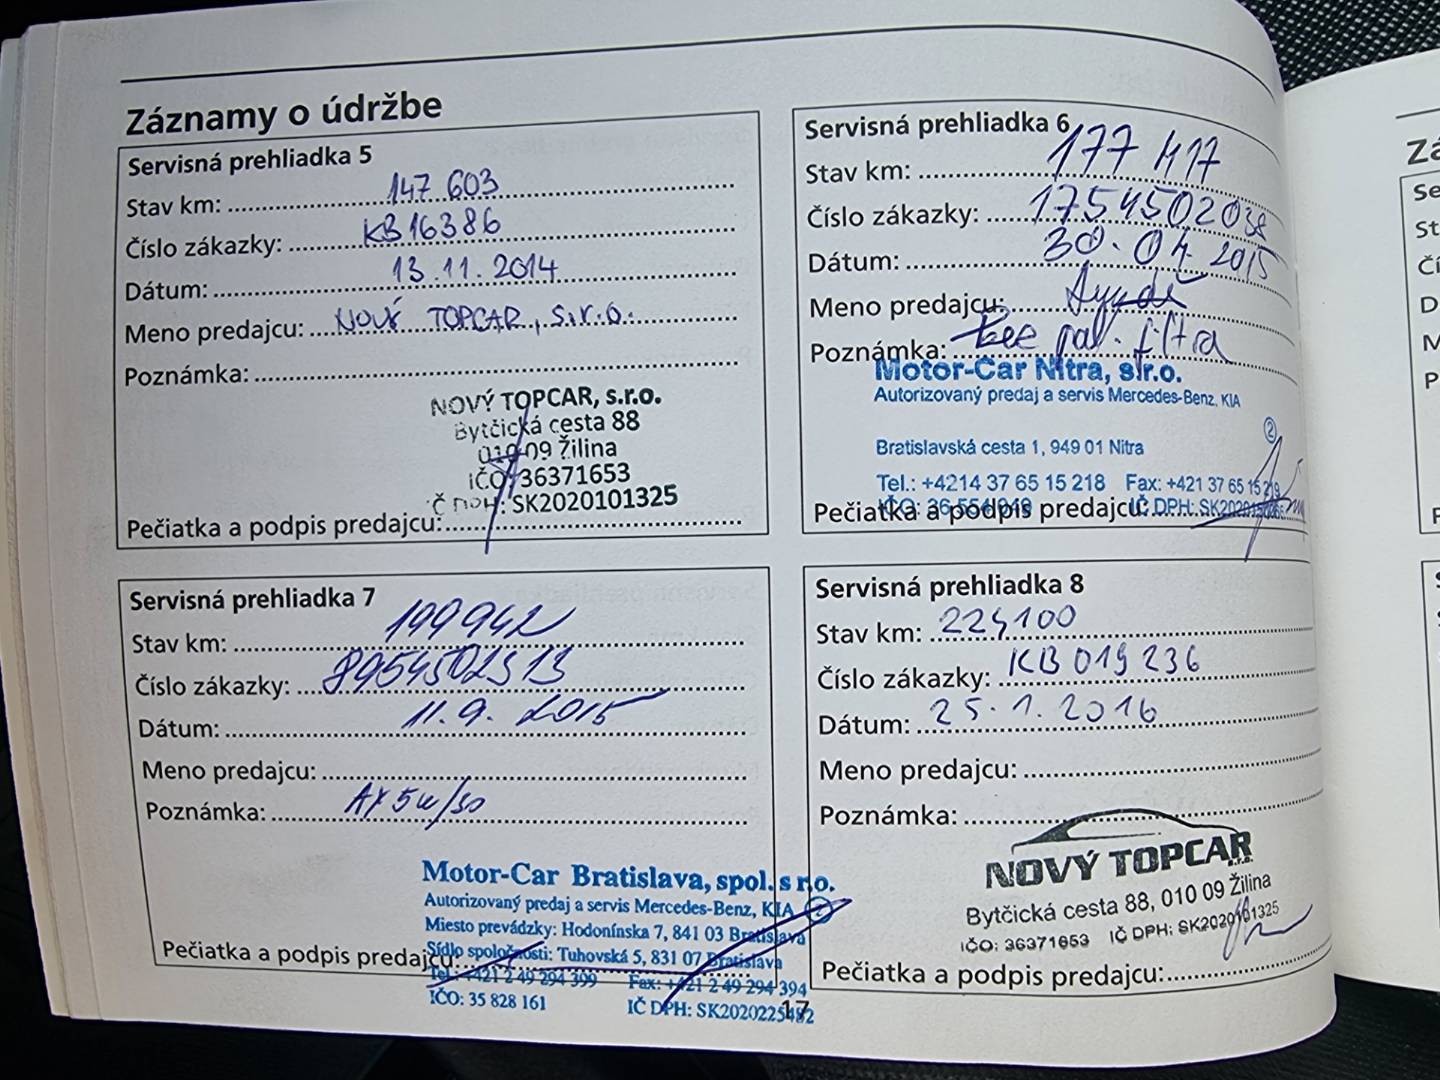 Záznamy o údržbe
Servisná prehliadka 5
Stav km: 147 603
Číslo zákazky: KB16386
Dátum: 13.11.2014
Meno predajcu: NOVÝ TOPCAR, s.r.o.
Poznámka:
NOVÝ TOPCAR, s.r.o.
Bytčická cesta 88
010 09 Žilina
IČO: 36371653
IČ DPH: SK2020101325
Pečiatka a podpis predajcu:
Servisná prehliadka 6
Stav km: 177 417
Číslo zákazky: 1754502038
Dátum: 30.04.2015
Meno predajcu:
Poznámka: bez pal. filtra
Motor-Car Nitra, s.r.o.
Autorizovaný predaj a servis Mercedes-Benz, KIA
Bratislavská cesta 1, 949 01 Nitra
Tel.: +4214 37 65 15 218 Fax: +421 37 65 15 219
Pečiatka a podpis predajcu: IČ DPH:
Servisná prehliadka 7
Stav km: 199942
Číslo zákazky: 8954502313
Dátum: 11.9.2015
Meno predajcu:
Poznámka: 5w/30
Motor-Car Bratislava, spol. s r.o.
Autorizovaný predaj a servis Mercedes-Benz, KIA
Miesto prevádzky: Hodonínska 7, 841 03 Bratislava
Sídlo spoločnosti: Tuhovská 5, 831 07 Bratislava
Pečiatka a podpis predajcu:
Tel.: +421 2 49 294 399 Fax: +421 2 49 294 394
IČO: 35 828 161 IČ DPH: SK2020225482
Servisná prehliadka 8
Stav km: 224100
Číslo zákazky: KB019236
Dátum: 25.1.2016
Meno predajcu:
Poznámka:
NOVÝ TOPCAR s.r.o.
Bytčická cesta 88, 010 09 Žilina
IČO: 36371653 IČ DPH: SK2020101325
Pečiatka a podpis predajcu:
17
Zá
Se
St
Čí
D
M
P